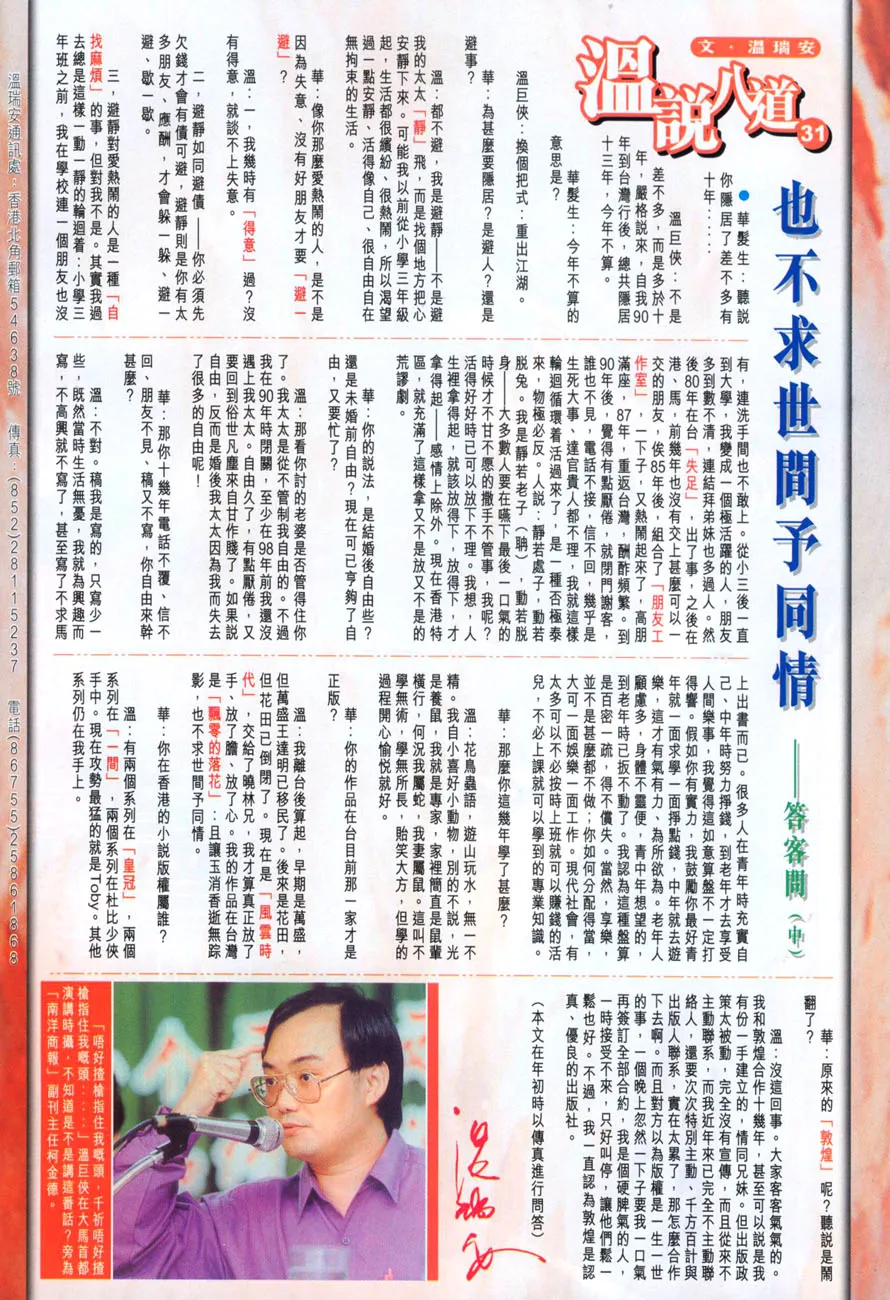 文・溫瑞安
溫說八道
31
也不求世間予同情
——答客問(中)
●華髮生:聽說
你隱居了差不多有
十年……
溫巨俠:不是
差不多,而是多於十
年,嚴格說來,自我90
年到台灣行後,總共隱居
十三年,今年不算。
華髮生:今年不算的
意思是?
溫巨俠:換個把式:重出江湖。
華:為甚麼要隱居?是避人?還是
避事?
溫:都不避,我是避靜——不是避
我的太太「靜」飛,而是找個地方把心
安靜下來。可能我以前從小學三年級
起,生活都很繽紛、很熱鬧,所以渴望
過一點安靜、活得像自己、很自由自在
無拘束的生活。
華:像你那麼愛熱鬧的人,是不是
因為失意、沒有好朋友才要「避一
避」?
溫:一,我幾時有「得意」過?沒
有得意,就談不上失意。
二,避靜如同避債——你必須先
欠錢才會有債可避,避靜則是你有太
多朋友、應酬,才會躲一躲、避一
避、歇一歇。
三,避靜對愛熱鬧的人是一種「自
找麻煩」的事,但對我不是。其實我過
去總是這樣一動一靜的輪迴着:小學三
年班之前,我在學校連一個朋友也沒
有,連洗手間也不敢上。從小三後一直
到大學,我變成一個極活躍的人,朋友
多到數不清,連結拜弟妹也多過人。然
後80年在台「失足」,出了事,之後在
港、馬,前幾年也沒有交上甚麼可以一
交的朋友,俟85年後,組合了「朋友工
作室」,一下子,又熱鬧起來了,高朋
滿座,87年,重返台灣,酬酢頻繁。到
90年後,覺得有點厭倦,就閉門謝客,
誰也不見,電話不接,信不回,幾乎是
生死大事、達官貴人都不理,我就這樣
輪迴循環着活過來了,是一種否極泰
來,物極必反。人說:靜若處子,動若
脫兔。我是靜若老子(聃),動若脫
身——大多數人要在嚥下最後一口氣的
時候才不甘不愿的撒手不管事,我呢?
活得好好時已可以放下不理。我想,人
生裡拿得起,就該放得下,放得下,才
拿得起——感情上除外。現在香港特
區,就充滿了這樣拿又不是放又不是的
荒謬劇。
華:你的說法,是結婚後自由些?
還是未婚前自由?現在可已亨夠了自
由,又要忙了?
溫:那看你討的老婆是否管得住你
了。我太太是從不管制我自由的。不過
我在90年時閉關,至少在98年前我還沒
遇上我太太。自由久了,有點厭倦,又
要回到俗世凡塵來自甘作賤了。如果說
自由,反而是婚後我太太因為我而失去
了很多的自由呢!
華:那你十幾年電話不覆、信不
回、朋友不見、稿又不寫,你自由來幹
甚麼?
溫:不對。稿我是寫的,只寫少一
些,既然當時生活無憂,我就為興趣而
寫,不高興就不寫了,甚至寫了不求馬
上出書而已。很多人在青年時充實自
己、中年時努力掙錢,到老年才去享受
人間樂事,我覺得這如意算盤不一定打
得響。假如你有實力,我鼓勵你最好青
年就一面求學一面掙點錢,中年就去遊
樂,這才有氣有力、為所欲為。老年人
顧慮多,身體不靈便,青中年想望的,
到老年時已扳不動了。我認為這種盤算
是百密一疏,得不償失。當然,享樂,
並不是甚麼都不做;你如何分配得當,
大可一面娛樂一面工作。現代社會,有
太多可以不必按時上班就可以賺錢的活
兒,不必上課就可以學到的專業知識。
華:那麼你這幾年學了甚麼?
溫:花鳥蟲語,遊山玩水,無一不
精。我自小喜好小動物,別的不說,光
是養鼠,我就是專家,家裡簡直是鼠輩
橫行,何況我屬蛇,我妻屬鼠。這叫不
學無術,學無所長,貽笑大方,但學的
過程開心愉悅就好。
華:你的作品在台目前那一家才是
正版?
溫:我離台後算起,早期是萬盛,
但萬盛王達明已移民了。後來是花田,
但花田己倒閉了。現在是「風雲時
代」,交給了曉林兄,我才算真正放了
手、放了膽、放了心。我的作品在台灣
是「飄零的落花」:且讓玉消香逝無踪
影,也不求世間予同情。
華:你在香港的小說版權屬誰?
溫:有兩個系列在「皇冠」,兩個
系列在「一間」,兩個系列在杜比少俠
手中。現在攻勢最猛的就是Toby。其他
系列仍在我手上。
華:原來的「敦煌」呢?聽說是鬧
翻了?
溫:沒這回事。大家客客氣氣的。
我和敦煌合作十幾年,甚至可以說是我
有份一手建立的,情同兄妹。但出版政
策太被動,完全沒有宣傳,而且從來不
主動聯系,而我近年來已完全不主動聯
絡人,還要次次特別主動、千方百計與
出版人聯系,實在太累了,那怎麼合作
下去啊。而且對方以為版權是一生一世
的事,一個晚上忽然一下子要我一口氣
再簽訂全部合約,我是個硬脾氣的人,
一時接受不來,只好叫停,讓他們鬆一
鬆也好。不過,我一直認為敦煌是認
真、優良的出版社。
(本文在年初時以傳真進行問答)
溫瑞安
「唔好揸槍指住我嘅頭,千祈唔好揸
槍指住我嘅頭……」溫巨俠在大馬首都
演講時攝,不知道是不是講這番話?旁為
「南洋商報」副刊主任柯金德。
溫瑞安通訊處:香港北角郵箱54638號 傳真:(852)28115237 電話(86755)25861868